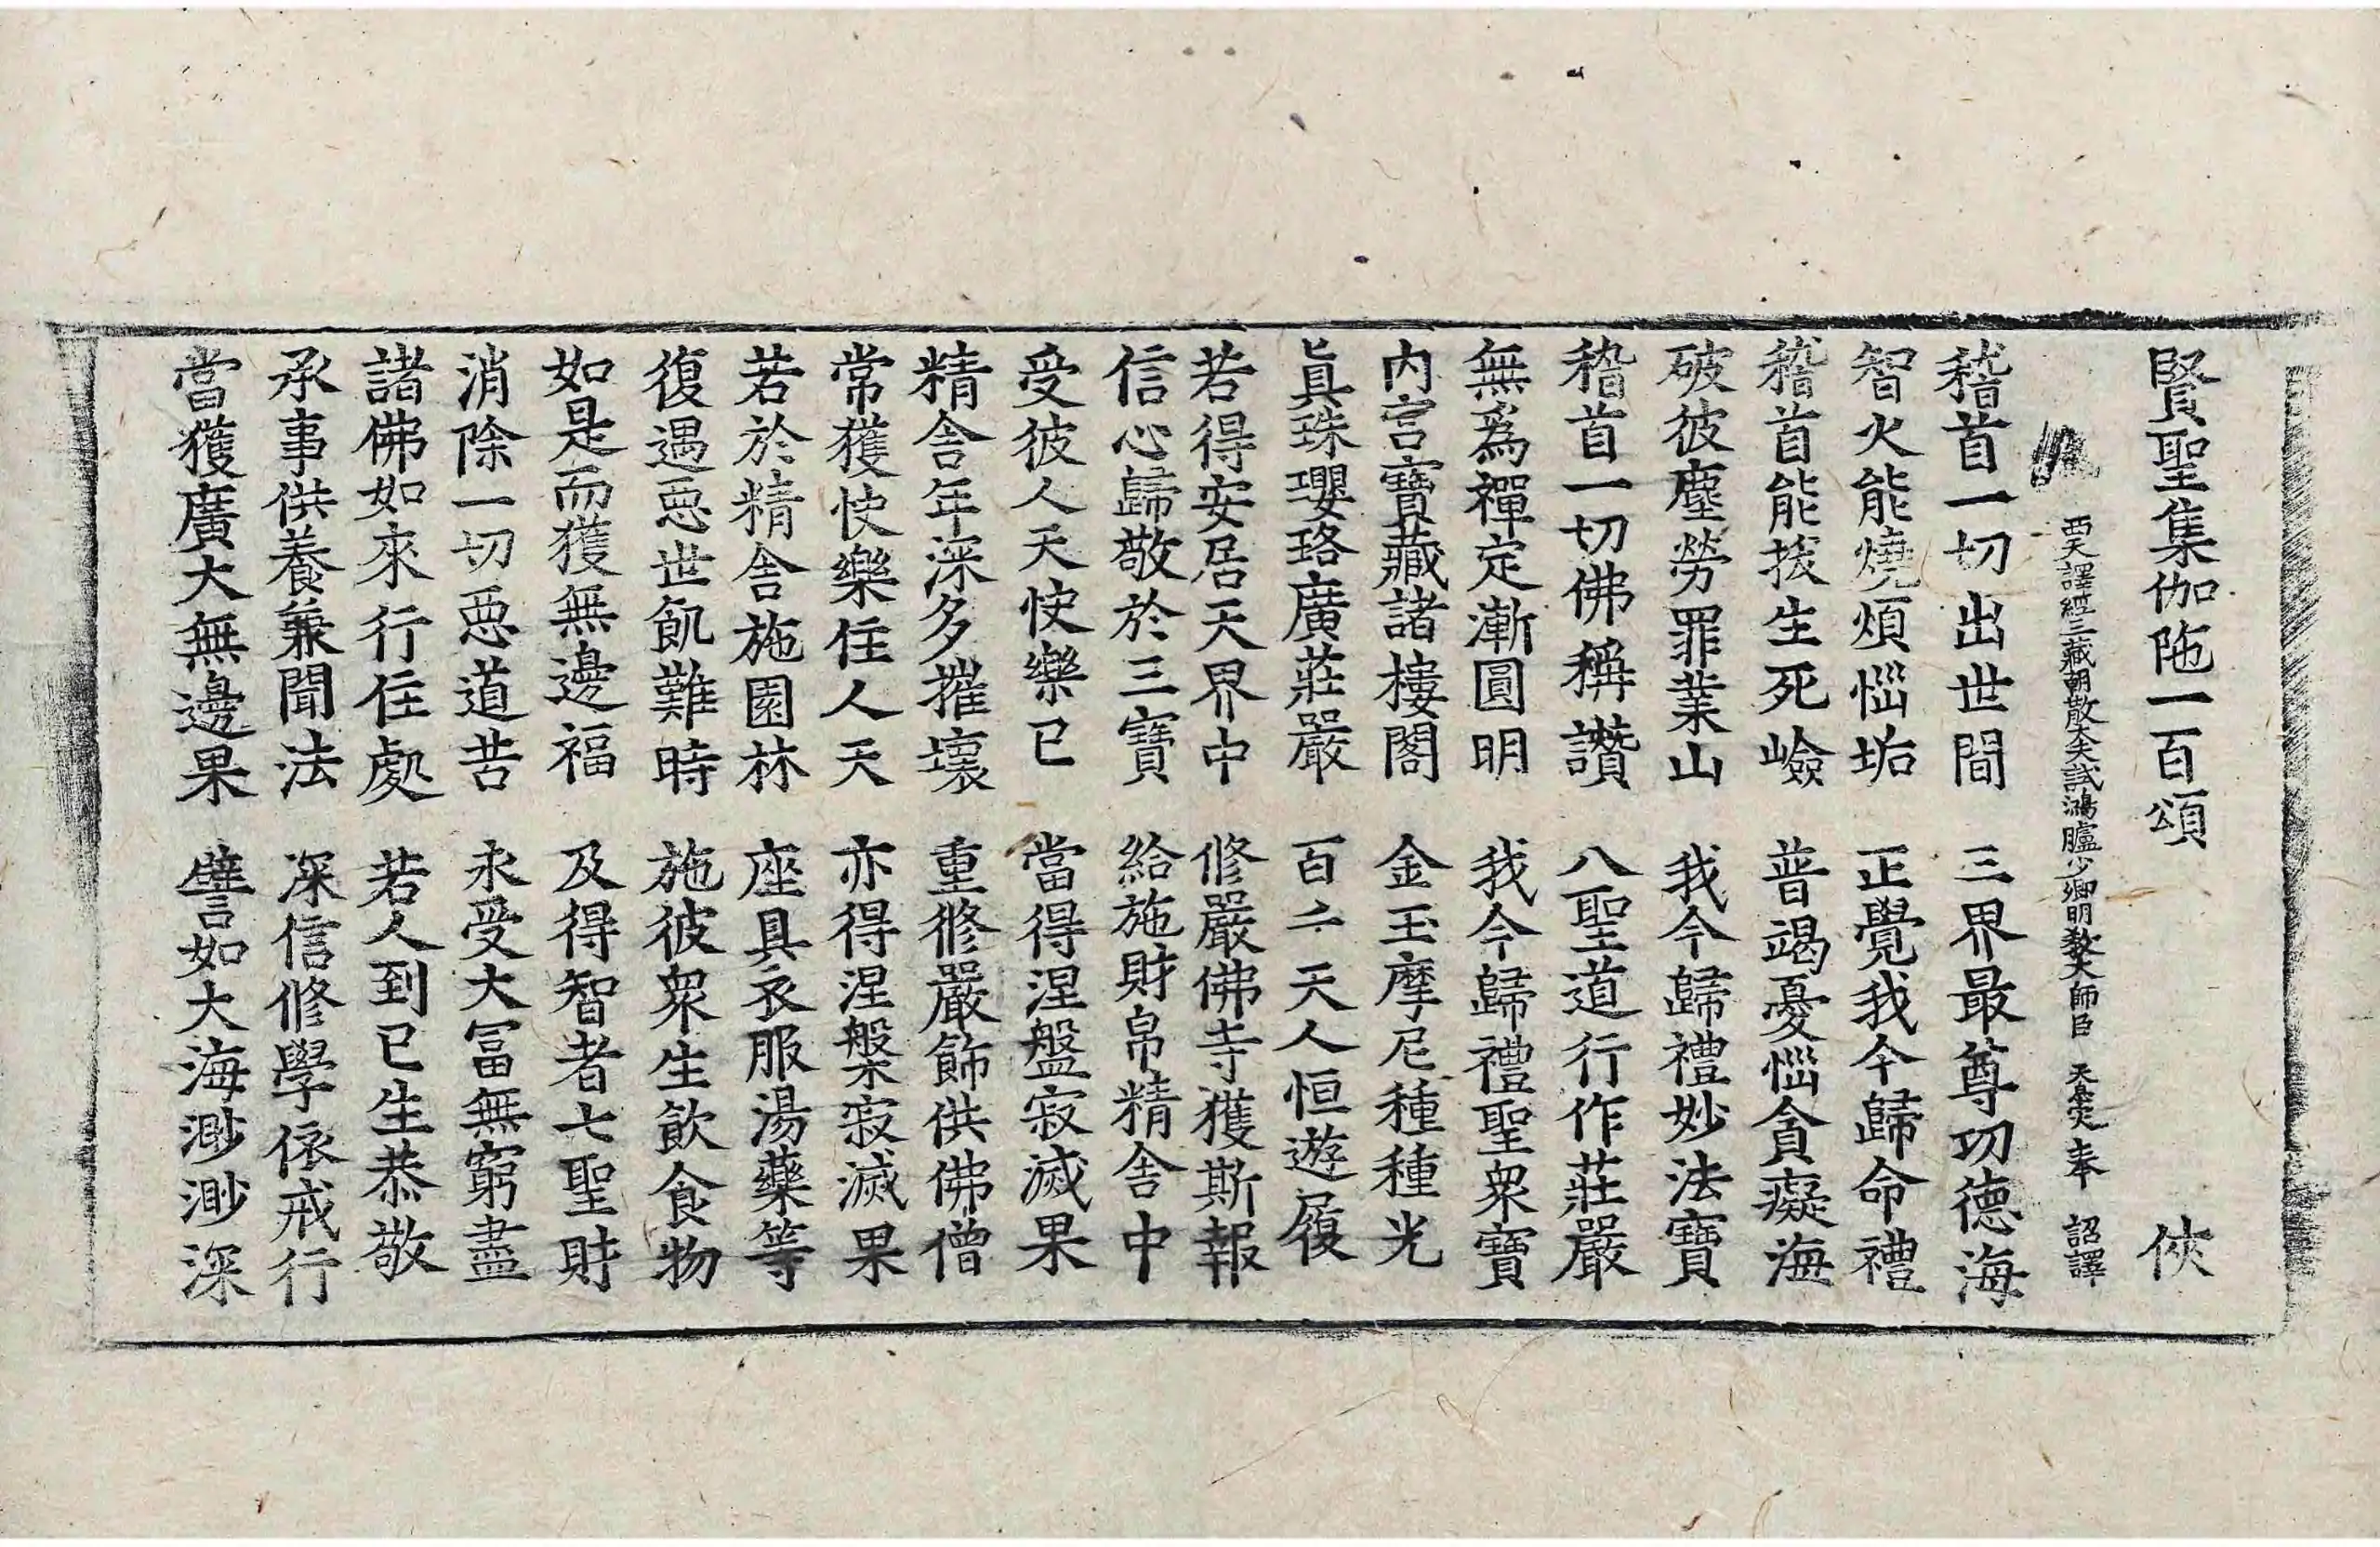 賢聖集伽陁一百頌 俠
西天譯經三藏朝散大夫試鴻臚少卿明教大師臣 天息灾奉 詔譯
稽首一切出世間 三界最尊功德海
智火能燒煩惱垢 正覺我今歸命禮
稽首能拔生死嶮 普竭憂惱貪癡海
破彼塵勞罪業山 我今歸禮妙法寶
稽首一切佛稱讚 八聖道行作莊嚴
無爲禪定漸圓明 我今歸禮聖衆寶
内宮寶藏諸樓閣 金玉摩尼種種光
眞珠瓔珞廣莊嚴 百千天人恒遊履
若得安居天界中 修嚴佛寺獲斯報
信心歸敬於三寶 給施財帛精舍中
受彼人天快樂已 當得涅盤寂滅果
精舍年深多摧壞 重修嚴飾供佛僧
常獲快樂住人天 亦得涅槃寂滅果
若於精舍施園林 座具衣服湯藥等
復遇惡世飢難時 施彼衆生飲食物
如是而獲無邊福 及得智者七聖財
消除一切惡道苦 永受大冨無窮盡
諸佛如來行住處 若人到已生恭敬
承事供養兼聞法 深信修學依戒行
當獲廣大無邊果 譬如大海渺渺深